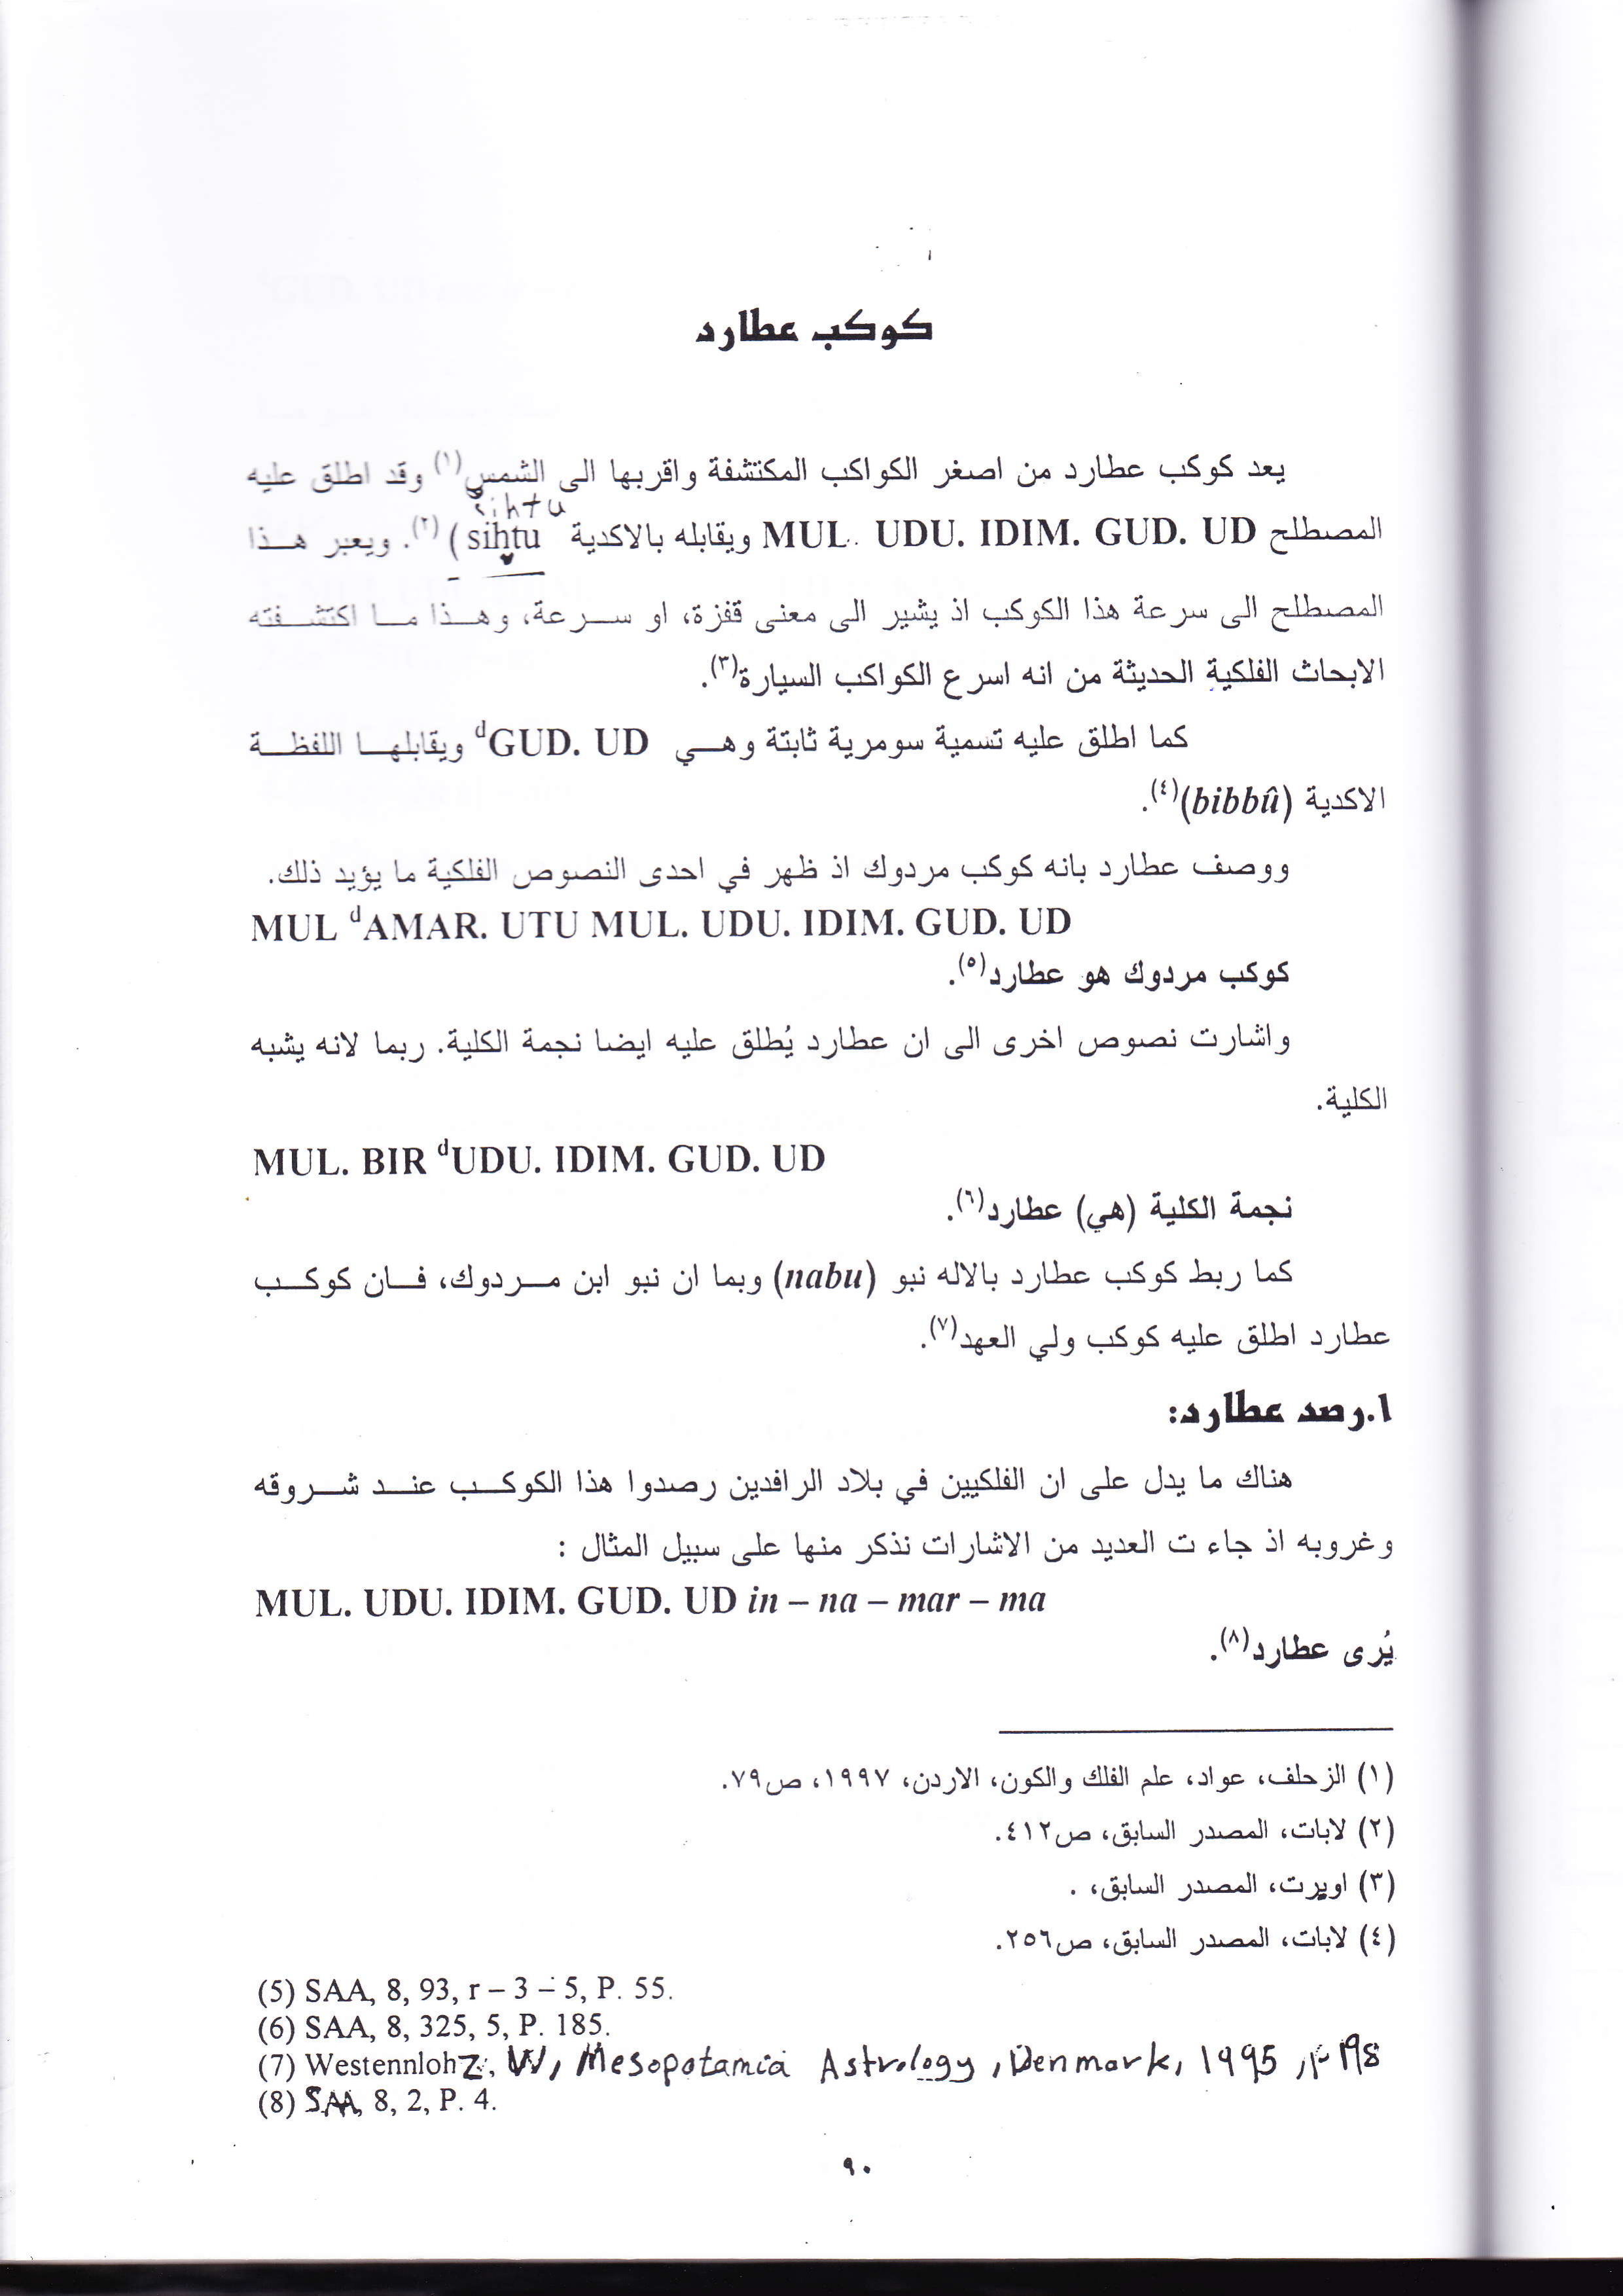 كوكب عطارد
يعد كوكب عطارد من اصغر الكواكب المكتشفة واقربها الى الشمس(١) وقد اطلق عليه
sihtu
المصطلح MUL. UDU. IDIM. GUD. UD ويقابله بالاكدية sihtu )(٢). ويعبر هـذا
المصطلح الى سرعة هذا الكوكب اذ يشير الى معنى قفزة، او سـرعة، وهـذا مـا اكتشـفته
الابحاث الفلكية الحديثة من انه اسرع الكواكب السيارة(٣).
كما اطلق عليه تسمية سومرية ثابتة وهـي dGUD. UD ويقابلهـا اللفظـة
الاكدية (bibbû)(٤).
ووصف عطارد بانه كوكب مردوك اذ ظهر في احدى النصوص الفلكية ما يؤيد ذلك.
MUL dAMAR. UTU MUL. UDU. IDIM. GUD. UD
كوكب مردوك هو عطارد(٥).
واشارت نصوص اخرى الى ان عطارد يُطلق عليه ايضا نجمة الكلية. ربما لانه يشبه
الكلية.
MUL. BIR dUDU. IDIM. GUD. UD
نجمة الكلية (هي) عطارد(٦).
كما ربط كوكب عطارد بالاله نبو (nabu) وبما ان نبو ابن مـردوك، فـان كوكـب
عطارد اطلق عليه كوكب ولي العهد(٧).
١.رصد عطارد:
هناك ما يدل على ان الفلكيين في بلاد الرافدين رصدوا هذا الكوكـب عنـد شـروقه
وغروبه اذ جاء ت العديد من الاشارات نذكر منها على سبيل المثال :
MUL. UDU. IDIM. GUD. UD in – na – mar – ma
يُرى عطارد(٨).
(١) الزحلف، عواد، علم الفلك والكون، الاردن، ١٩٩٧، ص٧٩.
(٢) لابات، المصدر السابق، ص٤١٢.
(٣) اويرت، المصدر السابق، .
(٤) لابات، المصدر السابق، ص٢٥٦.
(5) SAA, 8, 93, r – 3 – 5, P. 55.
(6) SAA, 8, 325, 5, P. 185.
(7) Westennlohz, W, Mesopotamia Astrology, Denmark, 1995
(8) SAA, 8, 2, P. 4.
٩٠